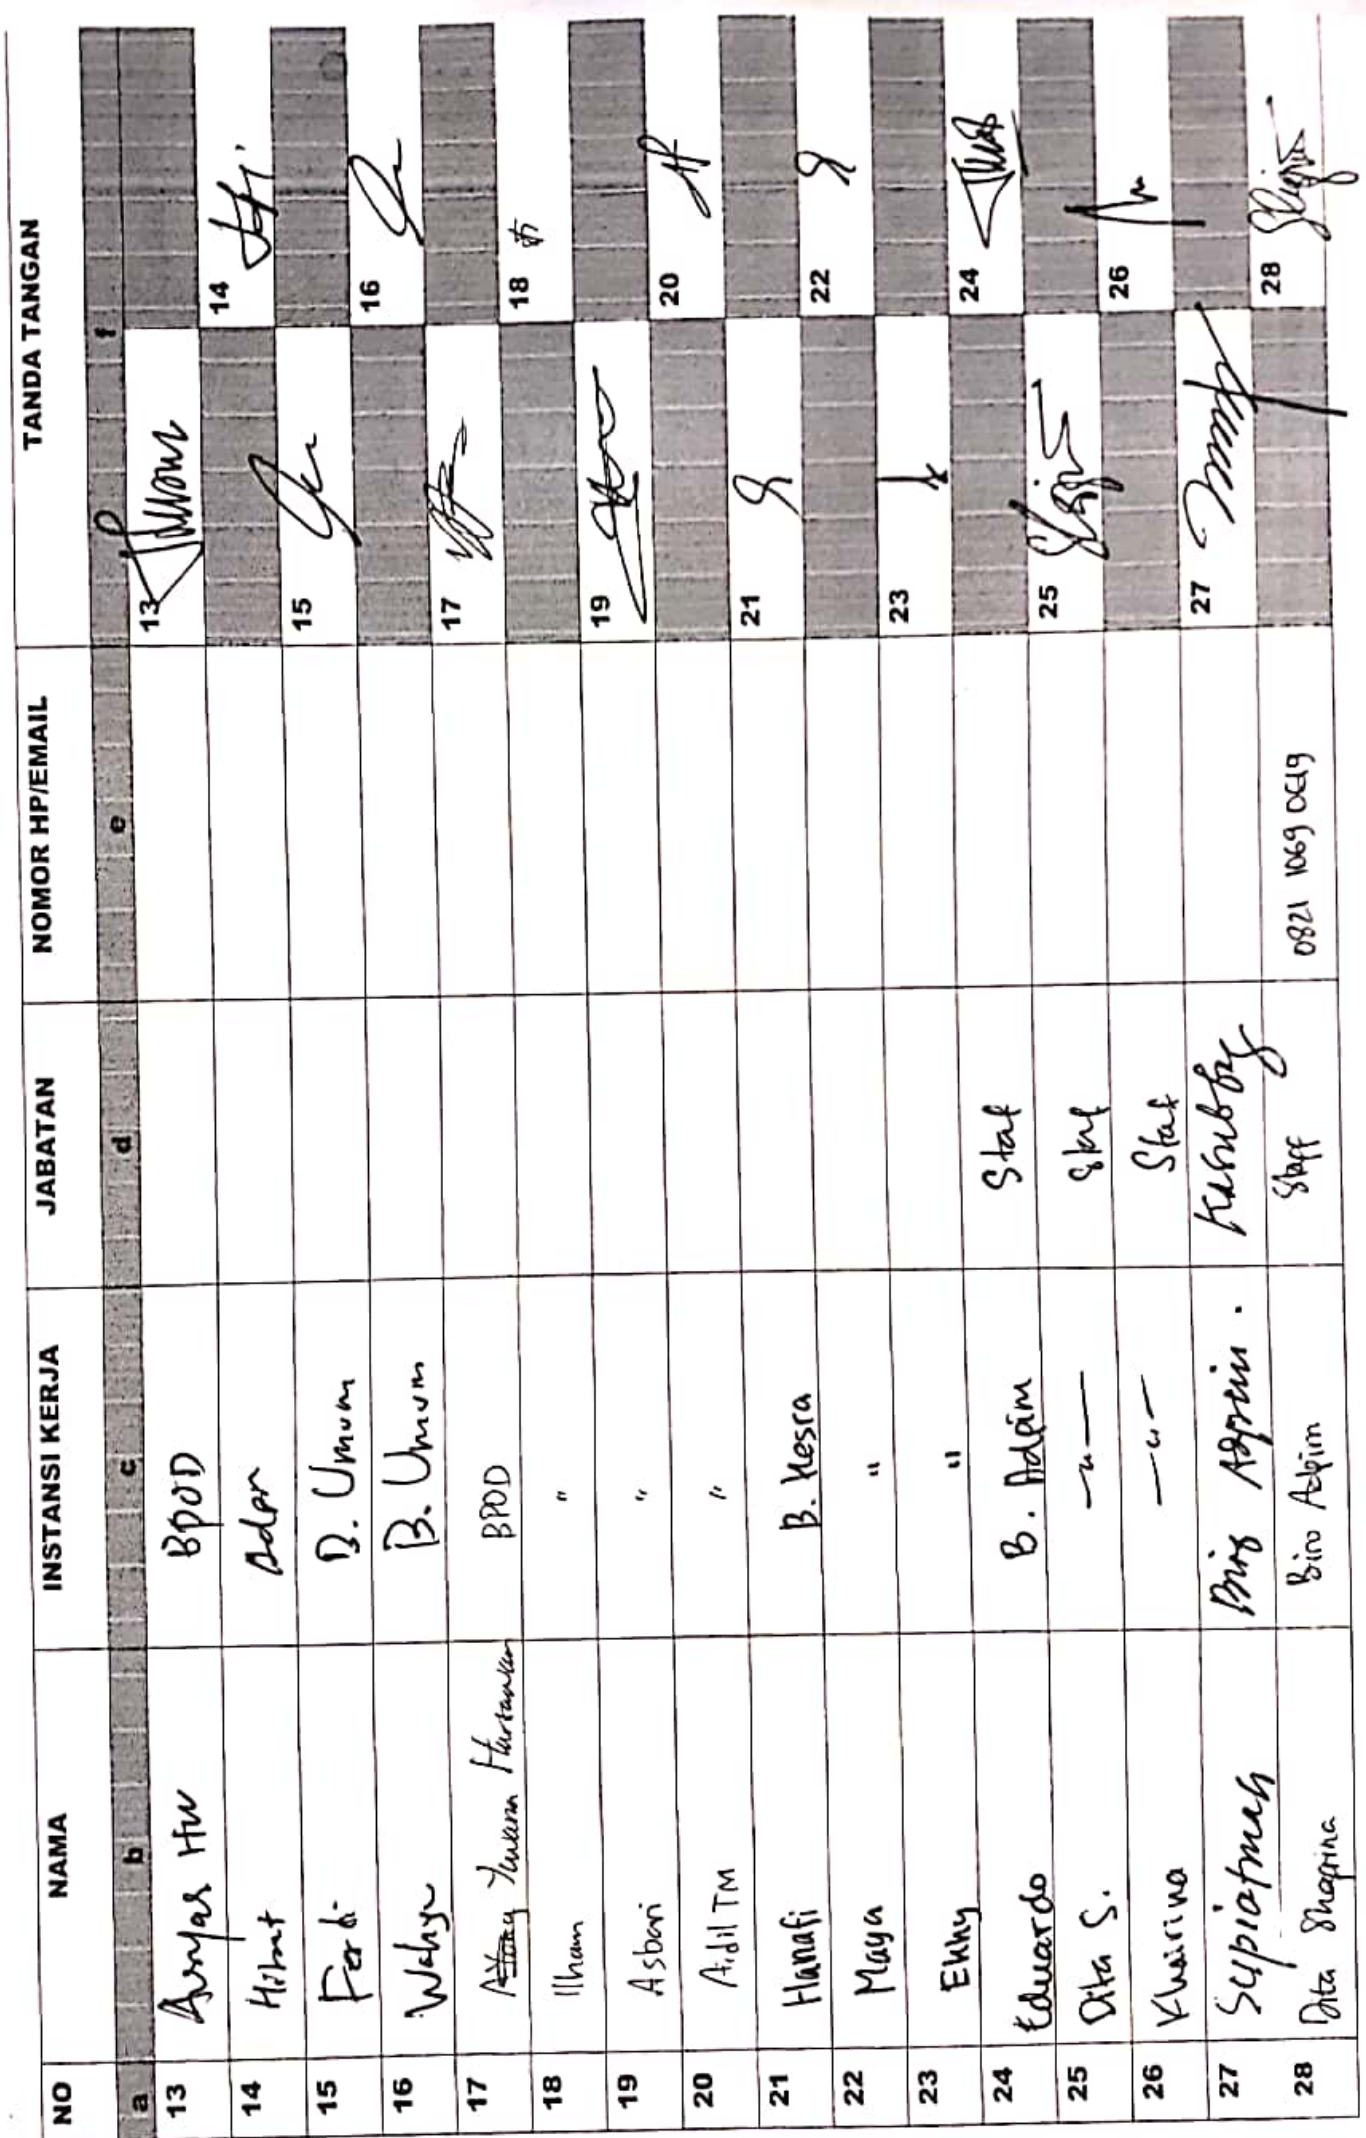 NO NAMA INSTANSI KERJA JABATAN NOMOR HP/EMAIL TANDA TANGAN
a b c d e f
13 HW BPOD 13
14 14
15 Ferdi B. Umum 15
16 Wahyu B. Umum 16
17 BPOD 17
18 Ilham " 18
19 Asbari " 19
20 Aidil TM " 20
21 Hanafi B. Kesra 21
22 Maya " 22
23 " 23
24 Eduardo B. Adpim Staf 24
25 Dita S. —"— Staf 25
26 Khairina —"— Staf 26
27 Adpim . Kasubbag 27
28 Dita Shaprina Biro Adpim Staff 0821 1069 28